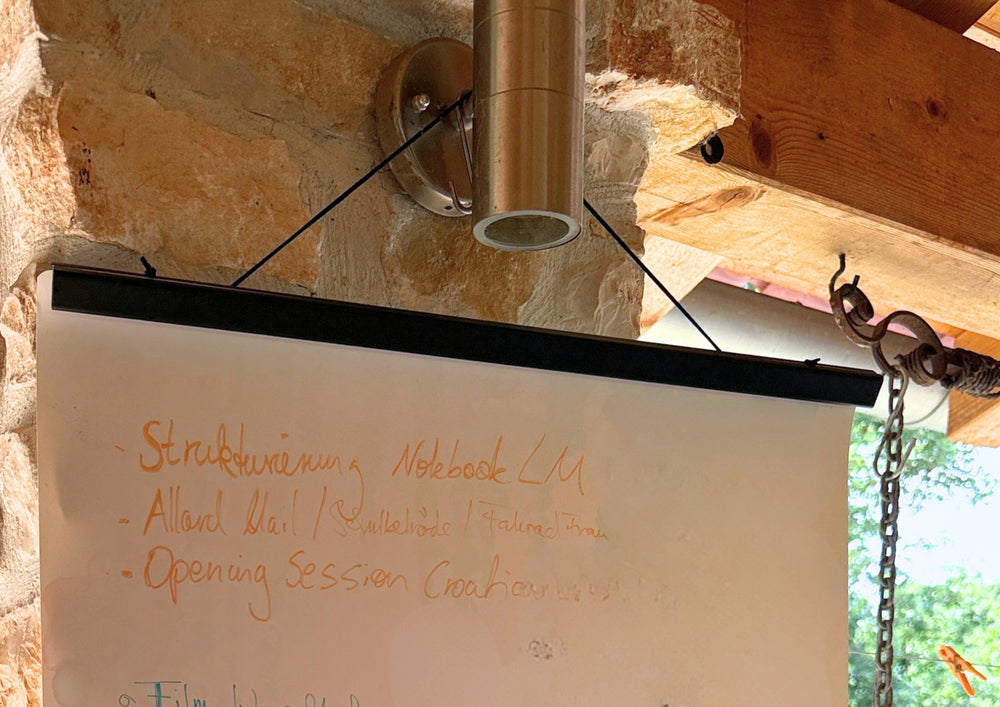 - Strukturierung Notebook LM
- Allard Mail / Schulbehörde / Fahrrad Frau
- Opening Session Croatia
Film